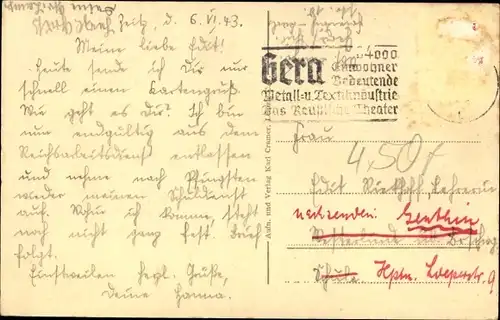 Zeitz, d. 6. VI. 43.
Meine liebe Edit!
Heute sende ich Dir nur
schnell einen Kartengruß.
Wie geht es Dir? Ich bin
nun endgültig aus dem
Reichsarbeitsdienst entlassen
und nehme nach Pfingsten
wieder meinen Schuldienst
auf. Wohin ich komme, steht
noch nicht ganz fest. Brief
folgt.
Einstweilen herzl. Grüße,
Deine Hanna.
Aufn. und Verlag Karl Cramer,
Gera
Einwohner
Bedeutende
Metall-u. Textilindustrie
das Reußische Theater
Frau
4,50
Edit Lehrerin
nachzusenden: Genthin
Westerland
Schule Hptn. Loeperstr. 9